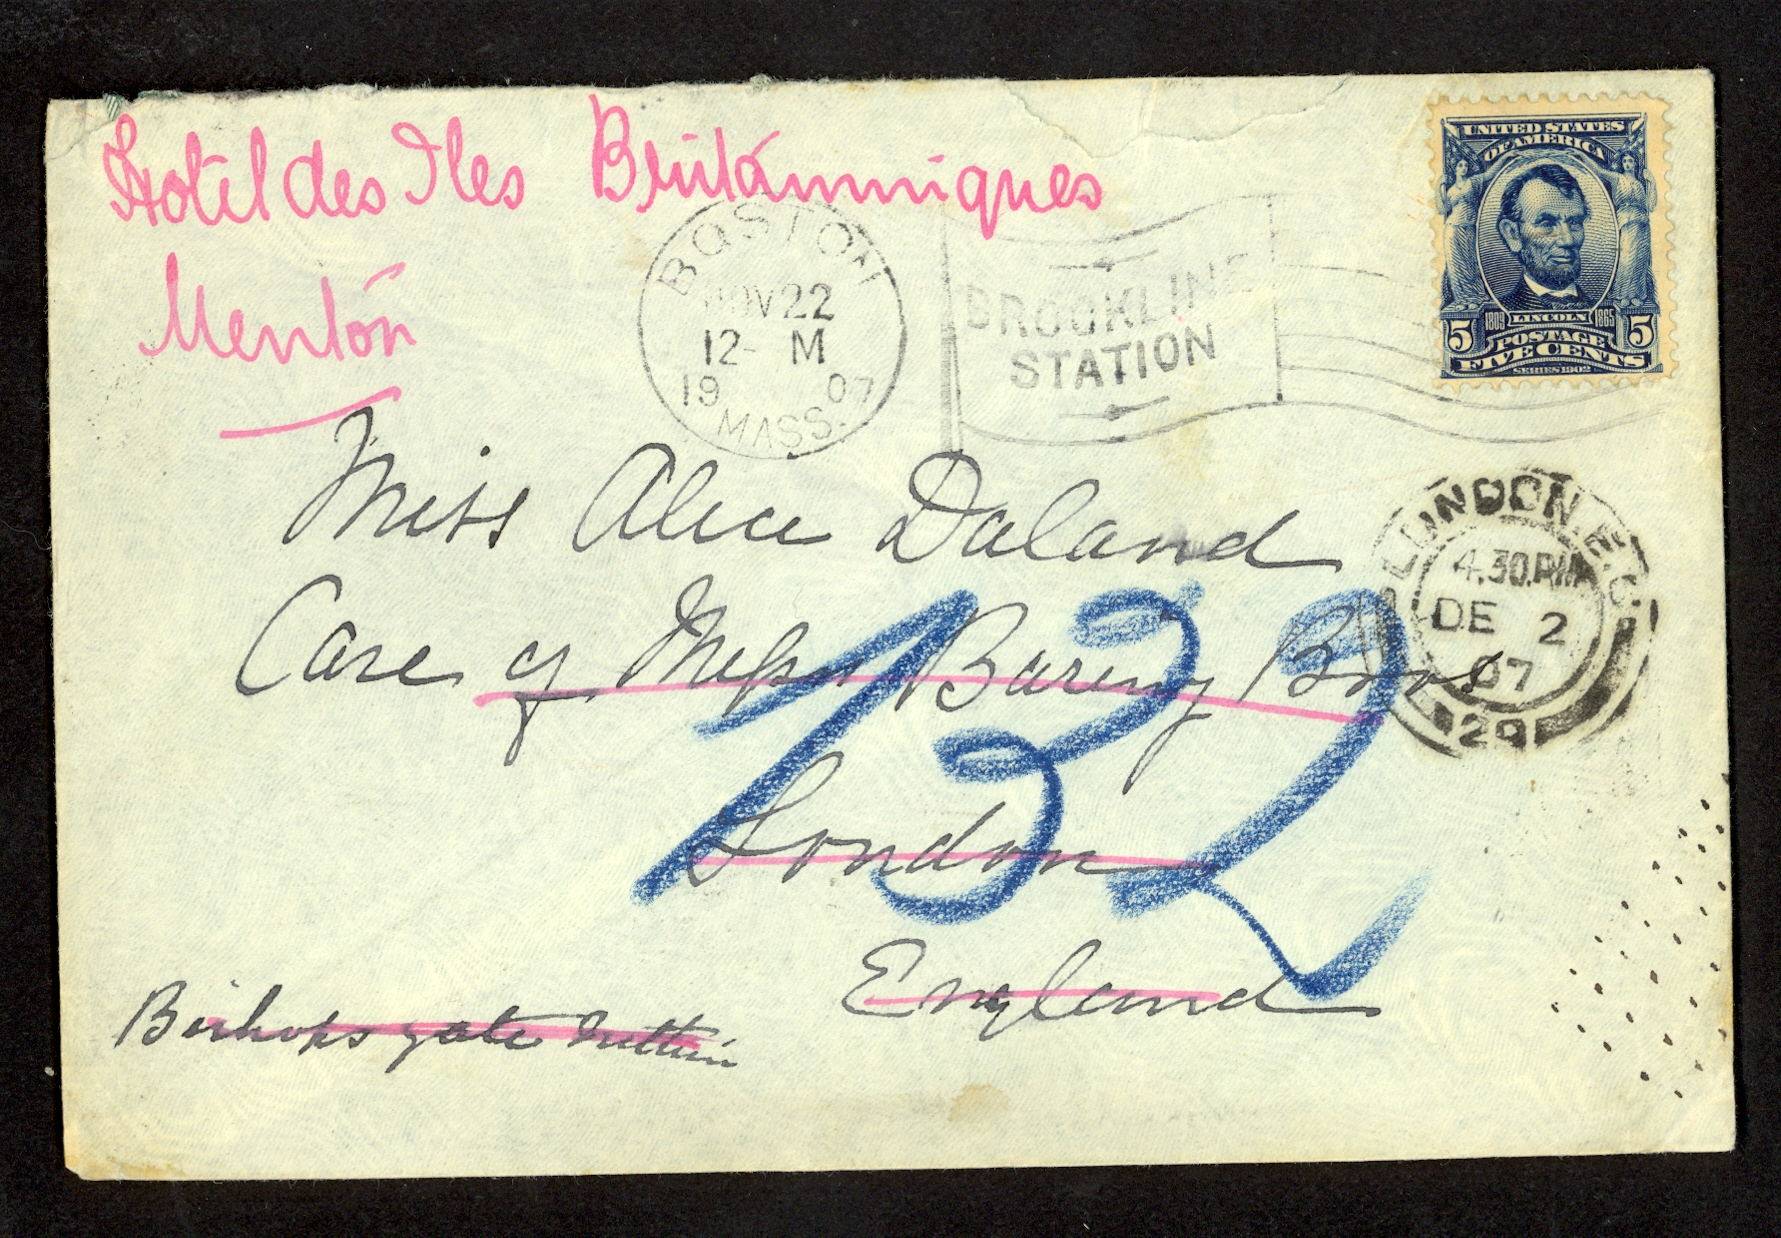 Hotel des Iles Britanniques
Menton
UNITED STATES
OF AMERICA
1809 LINCOLN 1865
5 POSTAGE 5
FIVE CENTS
SERIES 1902
BOSTON
NOV 22
12- M
19 07
MASS.
BROOKLINE
STATION
Miss Alice Daland
LONDON. E.C.
4.30.PM
DE 2
07
29
Care of Messrs Baring Bros
132
London
England
Bishops gate Within